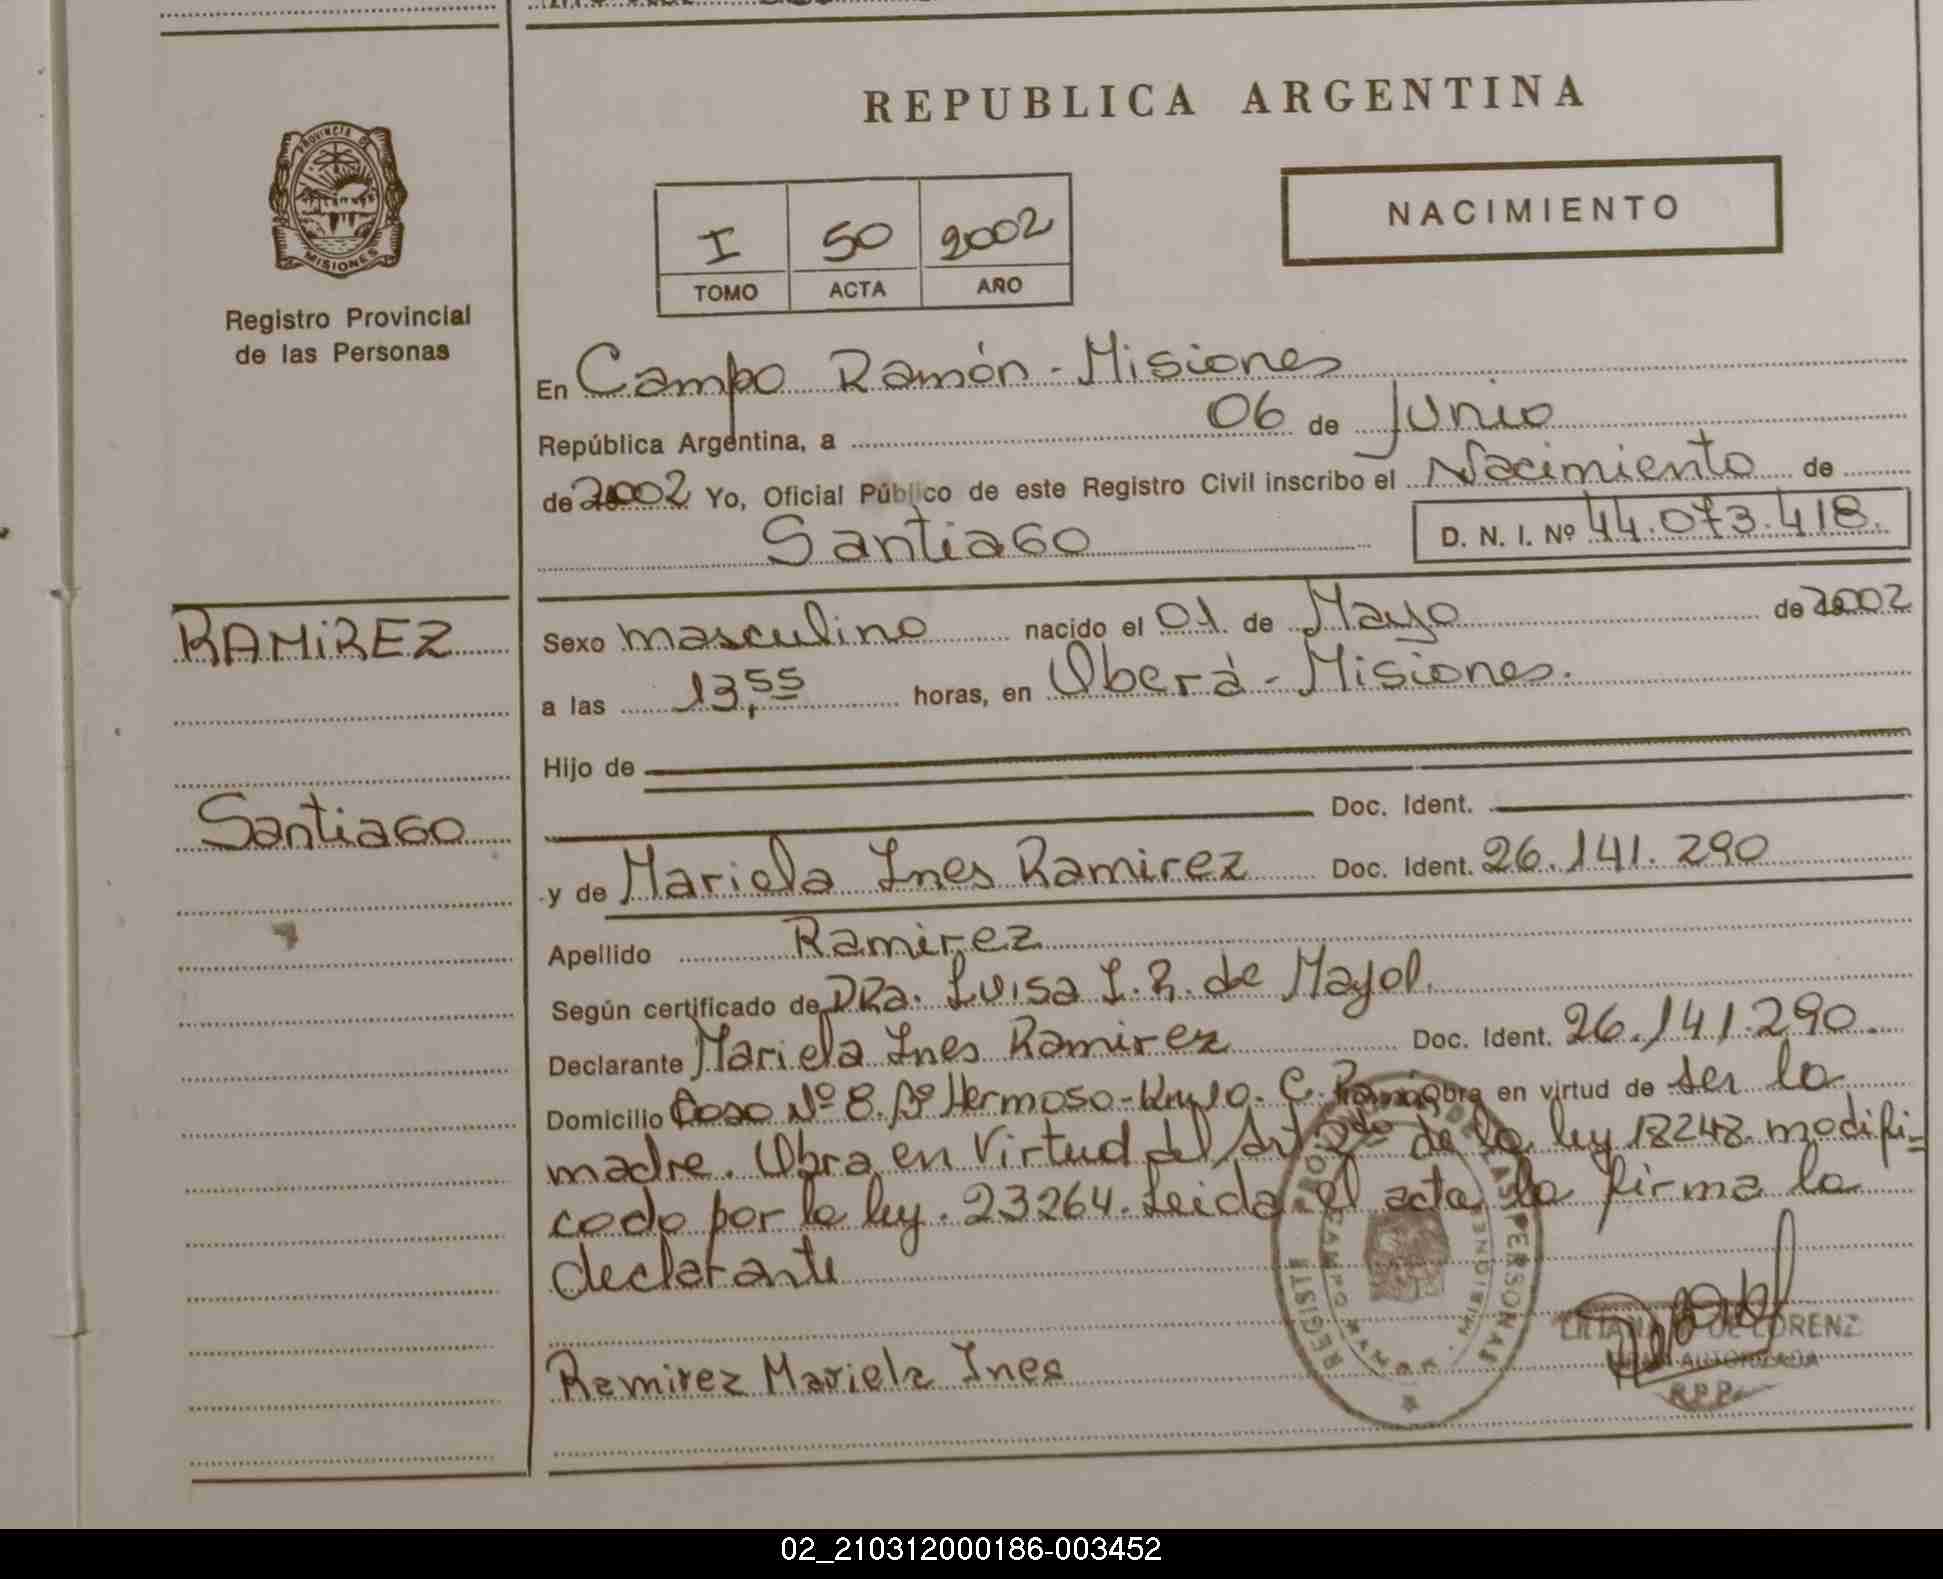 REPUBLICA ARGENTINA
PROVINCIA DE
MISIONES
Registro Provincial
de las Personas
NACIMIENTO
I 50 2002
TOMO ACTA AÑO
En Campo Ramón - Misiones
República Argentina, a 06 de Junio
de 2002 Yo, Oficial Público de este Registro Civil inscribo el Nacimiento de
Santiago D. N. I. Nº 44.073.418.
RAMIREZ
Santiago
Sexo masculino nacido el 01 de Mayo de 2002
a las 13,55 horas, en Oberá - Misiones.
Hijo de
Doc. Ident.
y de Mariela Ines Ramirez Doc. Ident. 26.141.290
Apellido Ramirez
Según certificado de DRa. Luisa I. R. de Mayol.
Declarante Mariela Ines Ramirez Doc. Ident. 26.141.290.
Domicilio Nº 8. Hermoso - C. obra en virtud de ser la
madre. Obra en Virtud del Art de la ley 18248. modifi-
cado por la ley. 23264. Leida el acta la firma la
declarante
Ramirez Mariela Ines
REGISTRO LAS PERSONAS
CAMPO RAMON
MISIONES
DE LORENZ
AUTORIZADA
R.P.P.
02_210312000186-003452